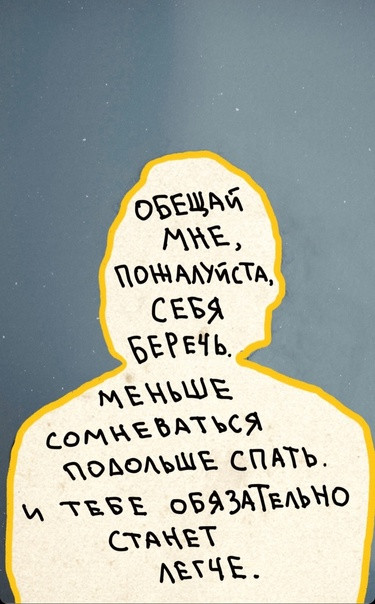 ОБЕЩАЙ
МНЕ,
ПОЖАЛУЙСТА,
СЕБЯ
БЕРЕЧЬ.
МЕНЬШЕ
СОМНЕВАТЬСЯ
ПОДОЛЬШЕ СПАТЬ.
И ТЕБЕ ОБЯЗАТЕЛЬНО
СТАНЕТ
ЛЕГЧЕ.